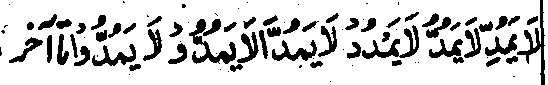 لَا یَمُدِّ لَا یَمُدُّ لَا یَمْدُدْ لَا یَمُدَّا لَا یَمُدُّوْ لَا یَمُدُّوْا تا آخر